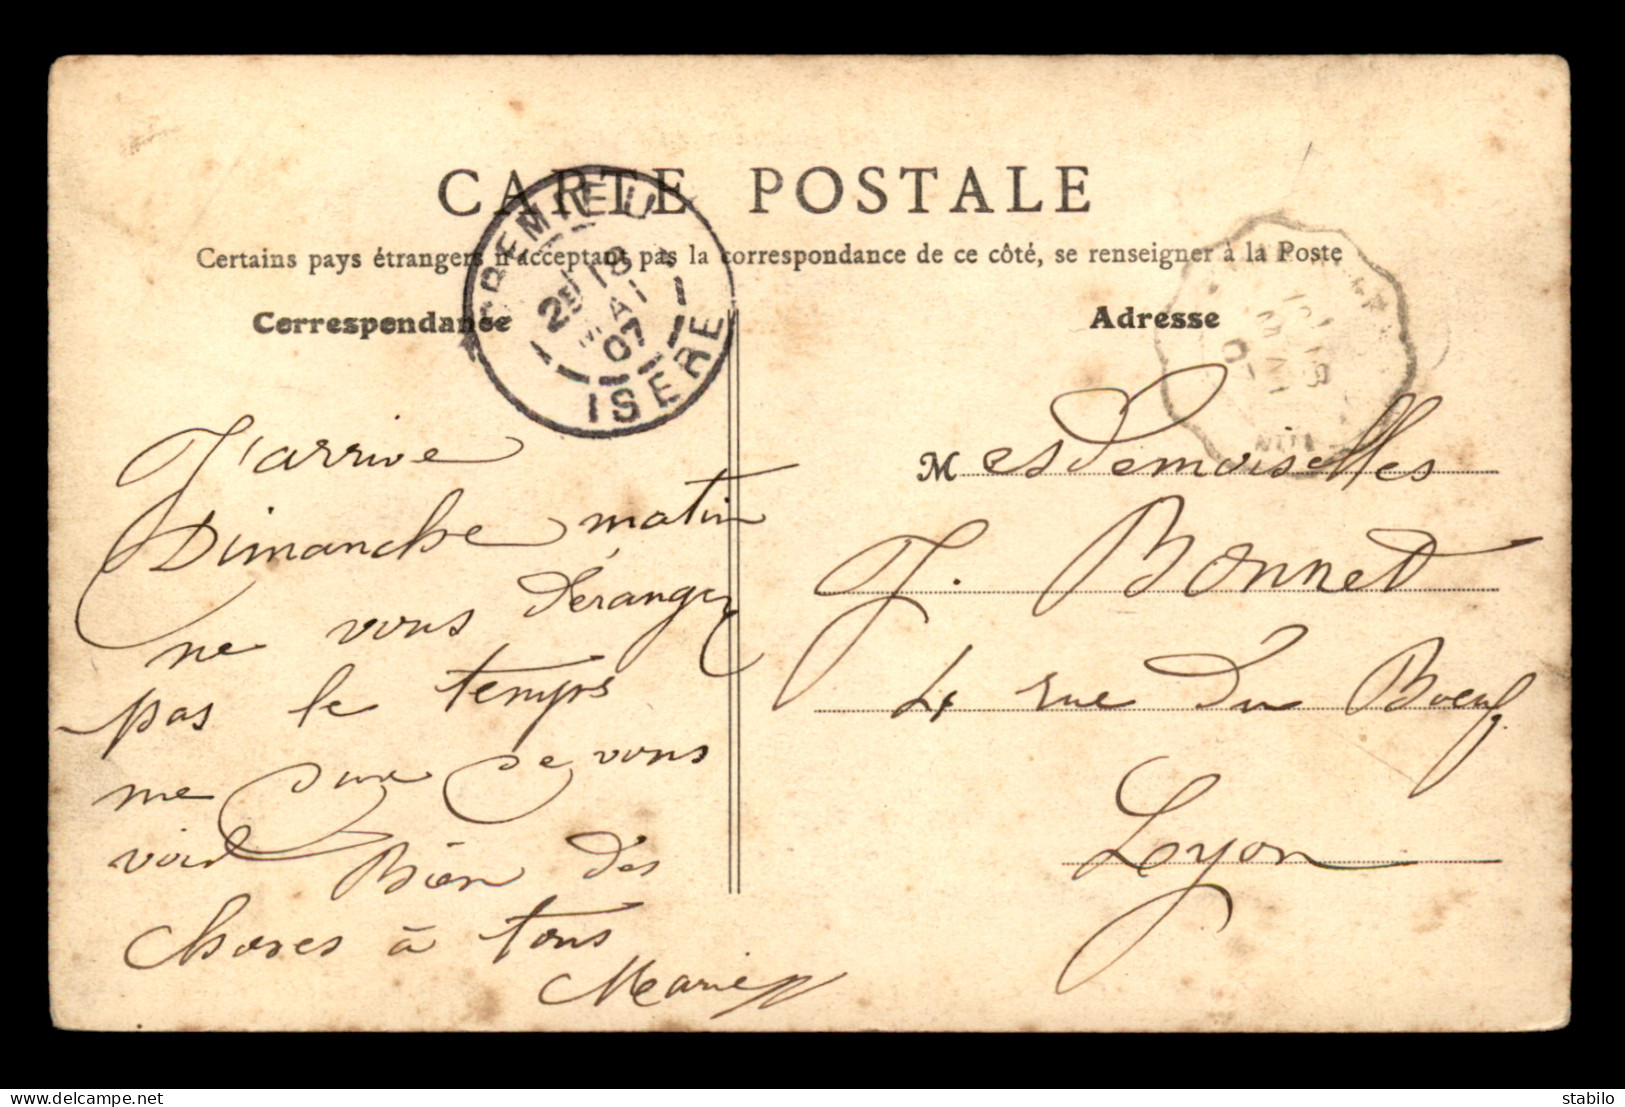 CARTE POSTALE
Certains pays étrangers n'acceptant pas la correspondance de ce côté, se renseigner à la Poste
Correspondance
Adresse
CREMIEU
2E 18
MAI
07
ISERE
J'arrive
Dimanche matin
ne vous dérangez
pas le temps
me dure de vous
voir Bien des
choses à tous
Marie
Mesdemoiselles
J. Bonnet
4 rue du Boeuf
Lyon
delcampe.net
stabilo